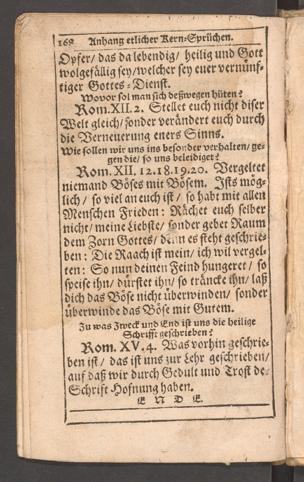 168 Anhang etlicher Kern-Sprüchen.
Opfer/ das da lebendig/ heilig und Gott
wolgefällig sey/ welcher sey euer vernünf-
tiger Gottes-Dienst.
Wovor sol man sich deßwegen hüten?
Rom. XII. 2. Stellet euch nicht diser
Welt gleich/ sonder verändert euch durch
die Verneuerung eners Sinns.
Wie sollen wir uns ins besonder verhalten/ ge-
gen die/ so uns beleidiget?
Rom. XII. 12. 18. 19. 20. Vergeltet
niemand Böses mit Bösem. Ists mög-
lich/ so viel an euch ist/ so habt mit allen
Menschen Frieden: Rächet euch selber
nicht/ meine Liebste/ sonder geber Raum
dem Zorn Gottes/ denn es steht geschrie-
ben: Die Raach ist mein/ ich wil vergel-
ten: So nun deinen Feind hungeret/ so
speise ihn/ dürstet ihn/ so träncke ihn/ laß
dich das Böse nicht überwinden/ sonder
überwinde das Böse mit Gutem.
Zu was Zweck und End ist uns die heilige
Schrifft geschrieben?
Rom. XV. 4. Was vorhin geschrie-
ben ist/ das ist uns zur Lehr geschrieben/
auf daß wir durch Gedult und Trost de-
Schrift Hofnung haben.
E N D E.